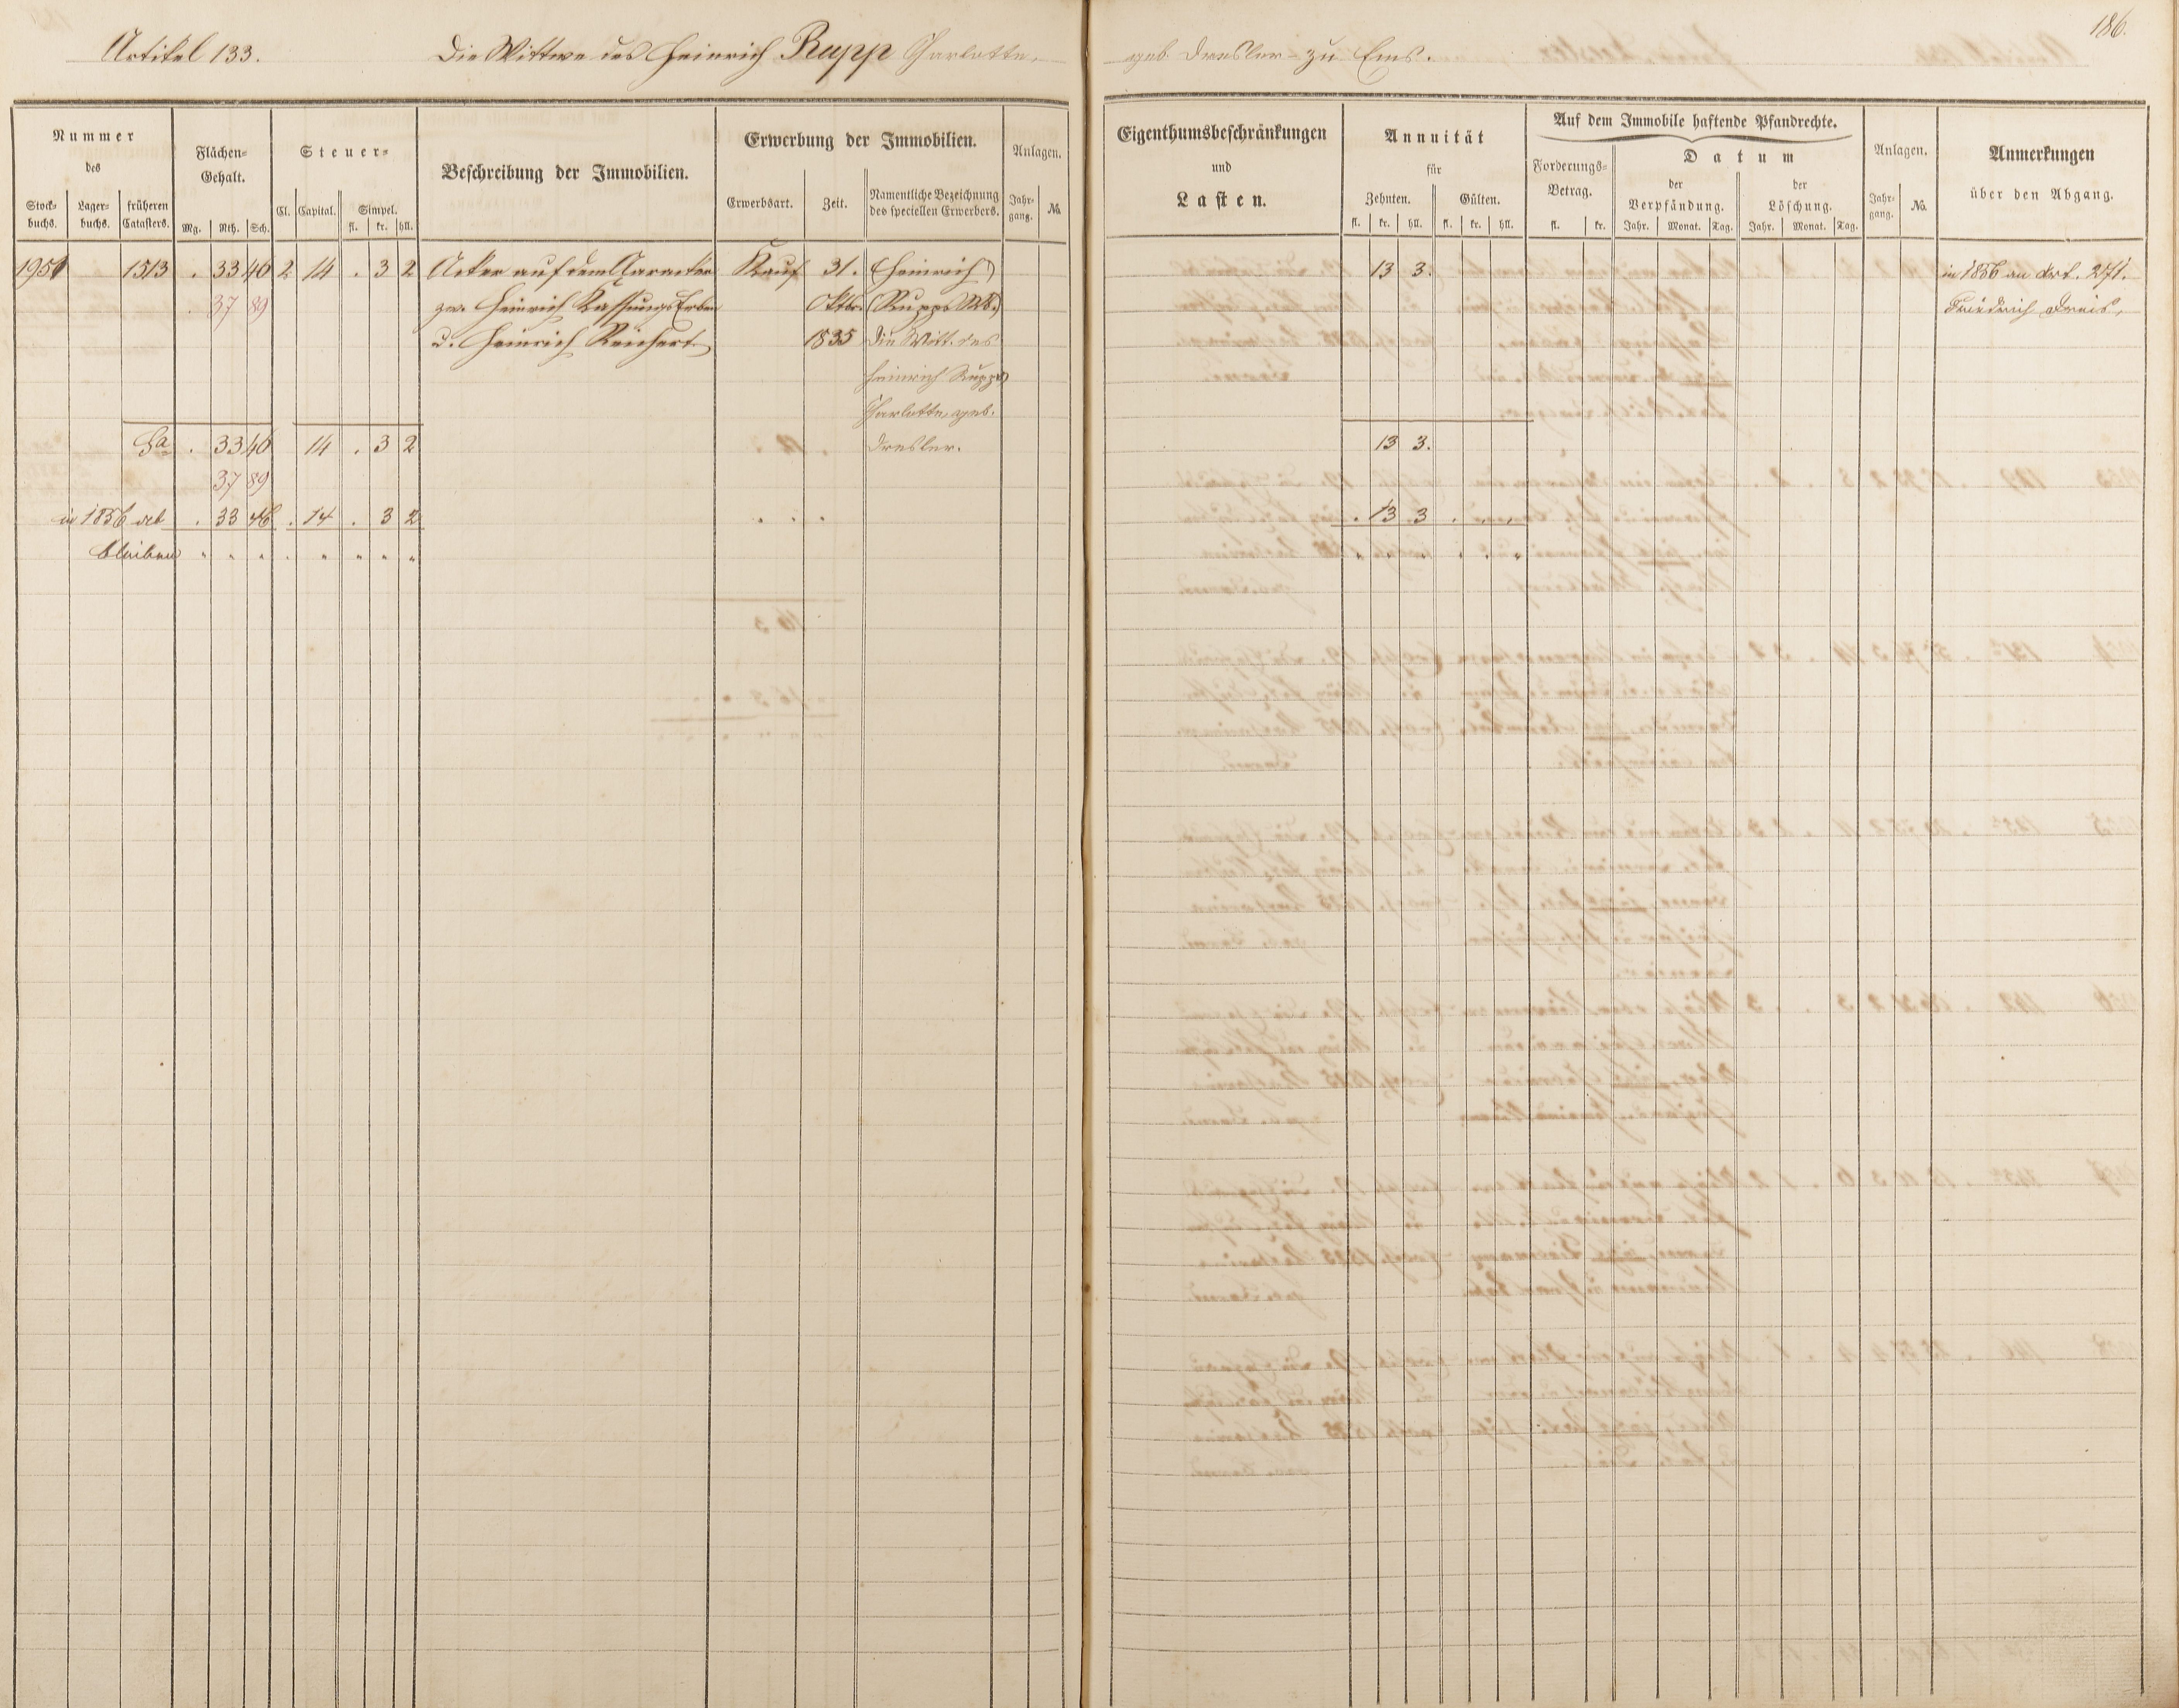 186.
Artikel 133. Die Wittwe des Heinrich Rupp Charlotte, geb. Dresler zu Ems.
Nummer
des
Stock-
buchs.
Lager-
buchs.
früheren
Catasters.
Flächen-
Gehalt.
Mg. Rth. Sch.
Steuer-
Cl. Capital. Simpel.
fl. kr. hll.
Beschreibung der Immobilien.
Erwerbung der Immobilien.
Erwerbsart. Zeit.
Namentliche Bezeichnung
des speciellen Erwerbers.
Anlagen.
Jahr-
gang.
No.
Eigenthumsbeschränkungen
und
Lasten.
Annuität
für
Zehnten. Gülten.
fl. kr. hll. fl. kr. hll.
Auf dem Immobile haftende Pfandrechte.
Forderungs-
Betrag.
fl. kr.
Datum
der
Verpfändung.
Jahr. Monat. Tag.
der
Löschung.
Jahr. Monat. Tag.
Anlagen.
Jahr-
gang.
No.
Anmerkungen
über den Abgang.
1951 1513 . 33 46 2 14 . 3 2 Acker auf dem Kauf 31. (Heinrich) 13 3. in 1856 an Art. 271.
37 89 zw. Heinrich Erben Oktbr. (Rupps Wb.) Friedrich Dreis,
u. Heinrich Reichert 1835 die Witt. des
Heinrich Rupp
Charlotte, geb.
Sa . 33 46 14 . 3 2 Dresler. 13 3.
37 89
in 1856 deb . 33 46 . 14 . 3 2 . . . . 13 3 . . .
bleiben " " " . " " " " " " " . . "